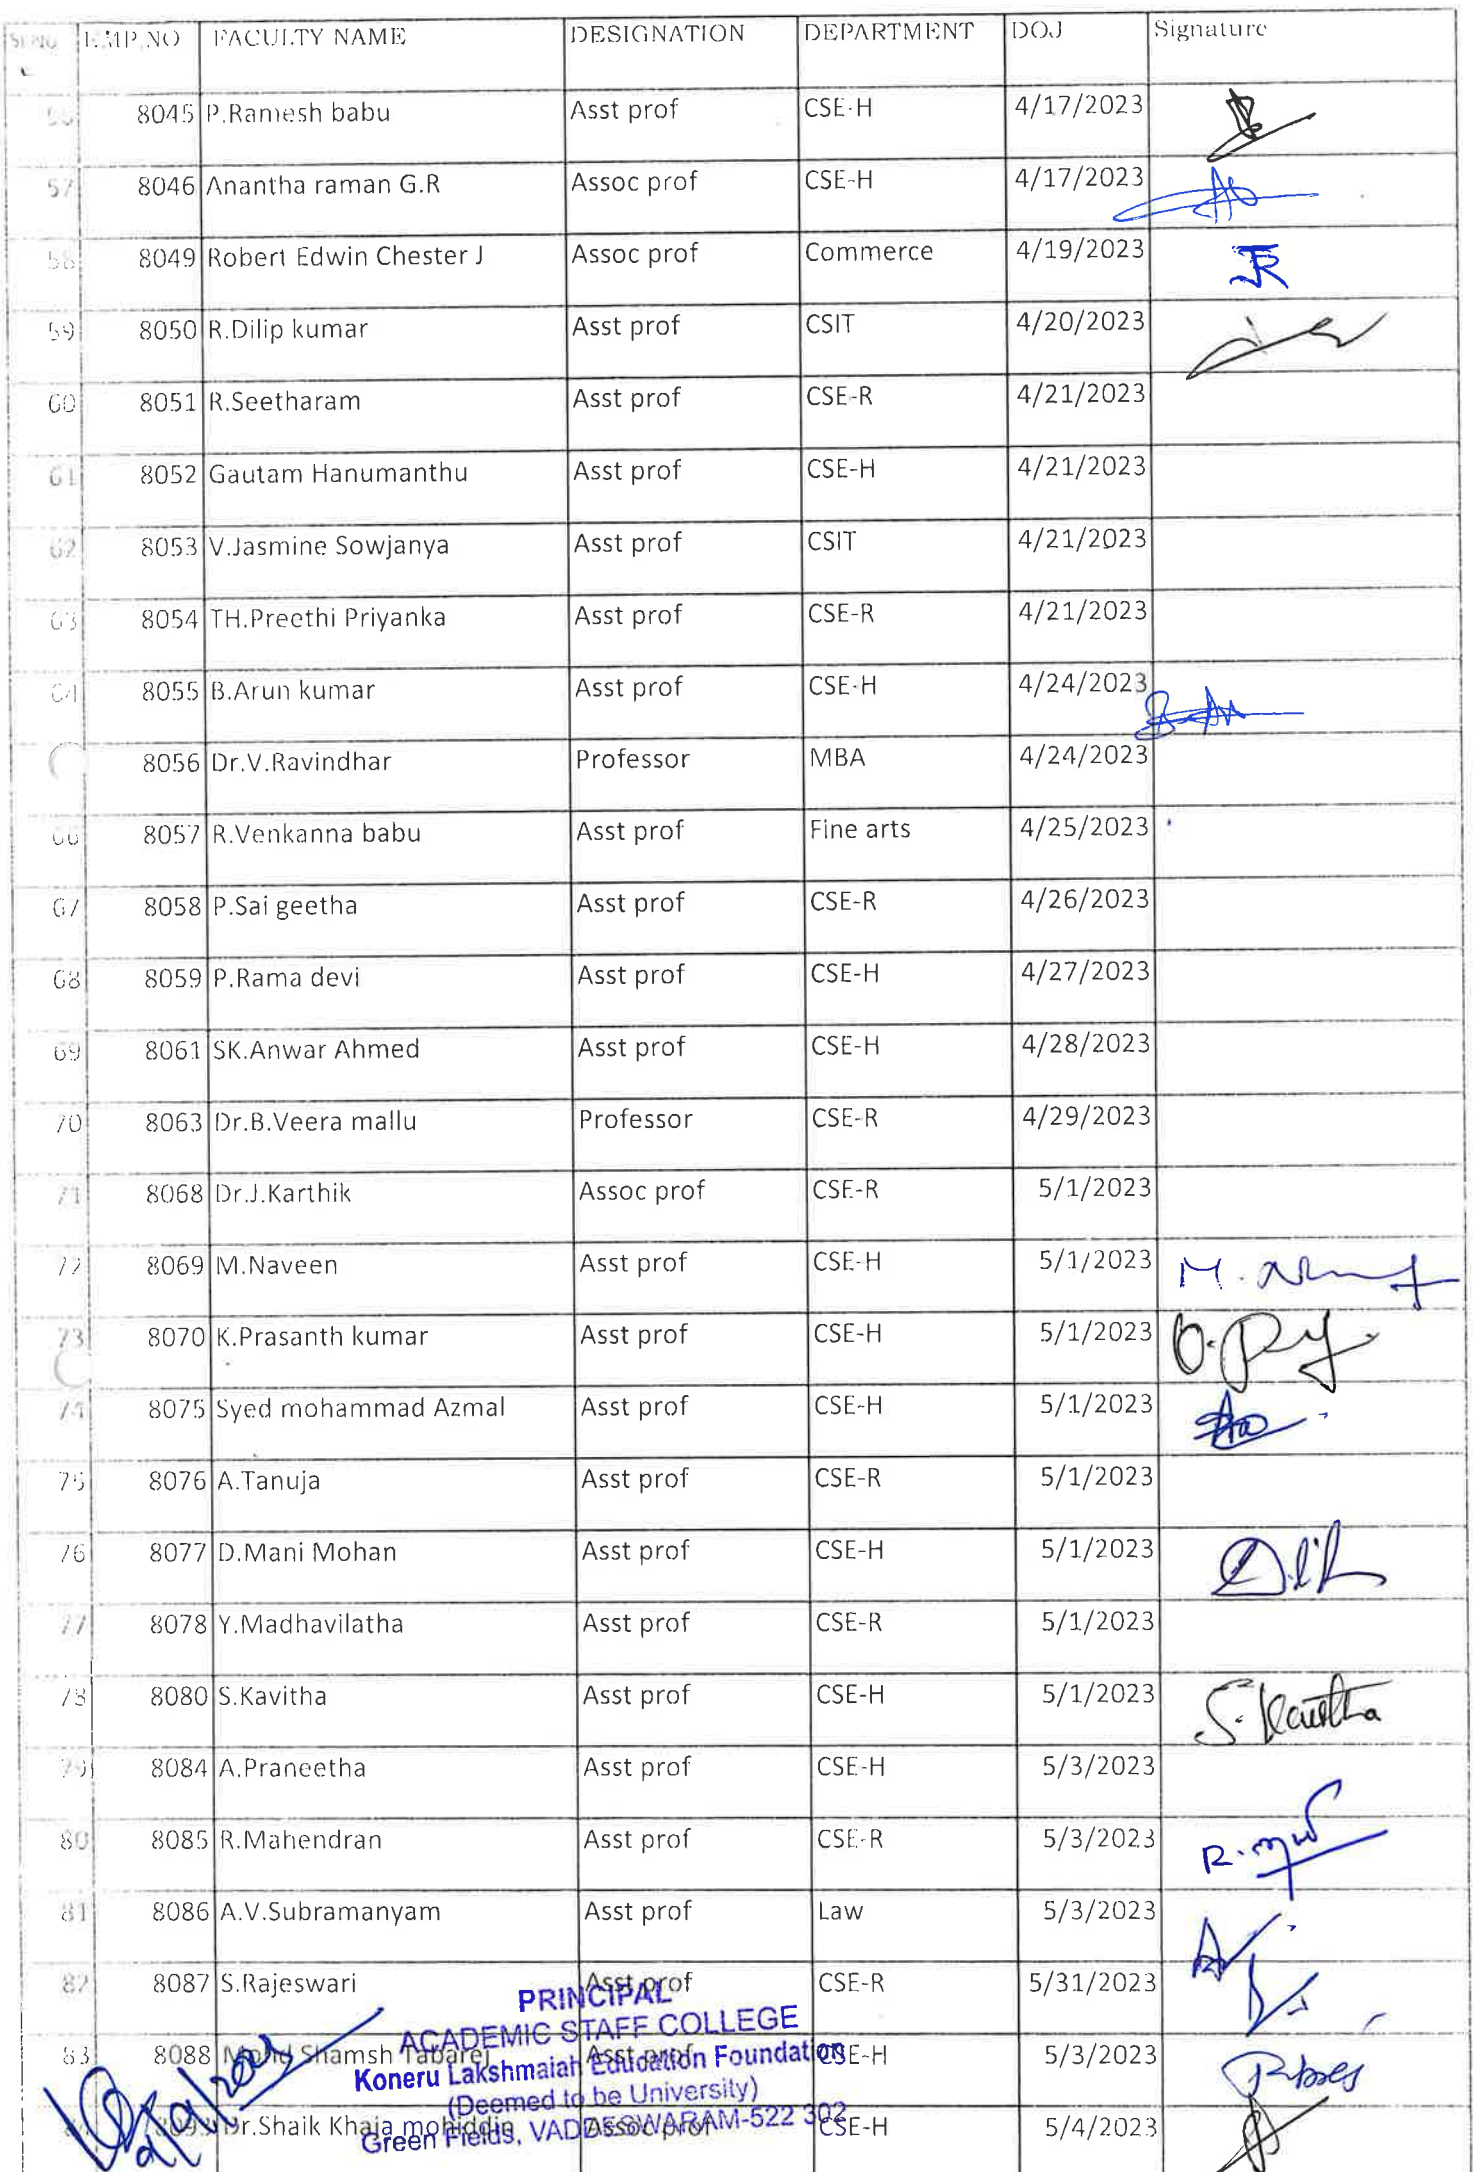 SI NO EMP NO FACULTY NAME DESIGNATION DEPARTMENT DOJ Signature
56 8045 P.Ramesh babu Asst prof CSE-H 4/17/2023
57 8046 Anantha raman G.R Assoc prof CSE-H 4/17/2023
58 8049 Robert Edwin Chester J Assoc prof Commerce 4/19/2023
59 8050 R.Dilip kumar Asst prof CSIT 4/20/2023
60 8051 R.Seetharam Asst prof CSE-R 4/21/2023
61 8052 Gautam Hanumanthu Asst prof CSE-H 4/21/2023
62 8053 V.Jasmine Sowjanya Asst prof CSIT 4/21/2023
63 8054 TH.Preethi Priyanka Asst prof CSE-R 4/21/2023
64 8055 B.Arun kumar Asst prof CSE-H 4/24/2023
8056 Dr.V.Ravindhar Professor MBA 4/24/2023
66 8057 R.Venkanna babu Asst prof Fine arts 4/25/2023
67 8058 P.Sai geetha Asst prof CSE-R 4/26/2023
68 8059 P.Rama devi Asst prof CSE-H 4/27/2023
69 8061 SK.Anwar Ahmed Asst prof CSE-H 4/28/2023
70 8063 Dr.B.Veera mallu Professor CSE-R 4/29/2023
71 8068 Dr.J.Karthik Assoc prof CSE-R 5/1/2023
72 8069 M.Naveen Asst prof CSE-H 5/1/2023
73 8070 K.Prasanth kumar Asst prof CSE-H 5/1/2023
74 8075 Syed mohammad Azmal Asst prof CSE-H 5/1/2023
75 8076 A.Tanuja Asst prof CSE-R 5/1/2023
76 8077 D.Mani Mohan Asst prof CSE-H 5/1/2023
77 8078 Y.Madhavilatha Asst prof CSE-R 5/1/2023
78 8080 S.Kavitha Asst prof CSE-H 5/1/2023 S. Kavitha
79 8084 A.Praneetha Asst prof CSE-H 5/3/2023
80 8085 R.Mahendran Asst prof CSE-R 5/3/2023
81 8086 A.V.Subramanyam Asst prof Law 5/3/2023
82 8087 S.Rajeswari Asst prof CSE-R 5/31/2023
PRINCIPAL
ACADEMIC STAFF COLLEGE
83 8088 Mohd Shamsh Tabarej Asst prof CSE-H 5/3/2023
Koneru Lakshmaiah Education Foundation
(Deemed to be University)
Dr.Shaik Khaja mohiddin Assoc prof CSE-H 5/4/2023
Green Fields, VADDESWARAM-522 302